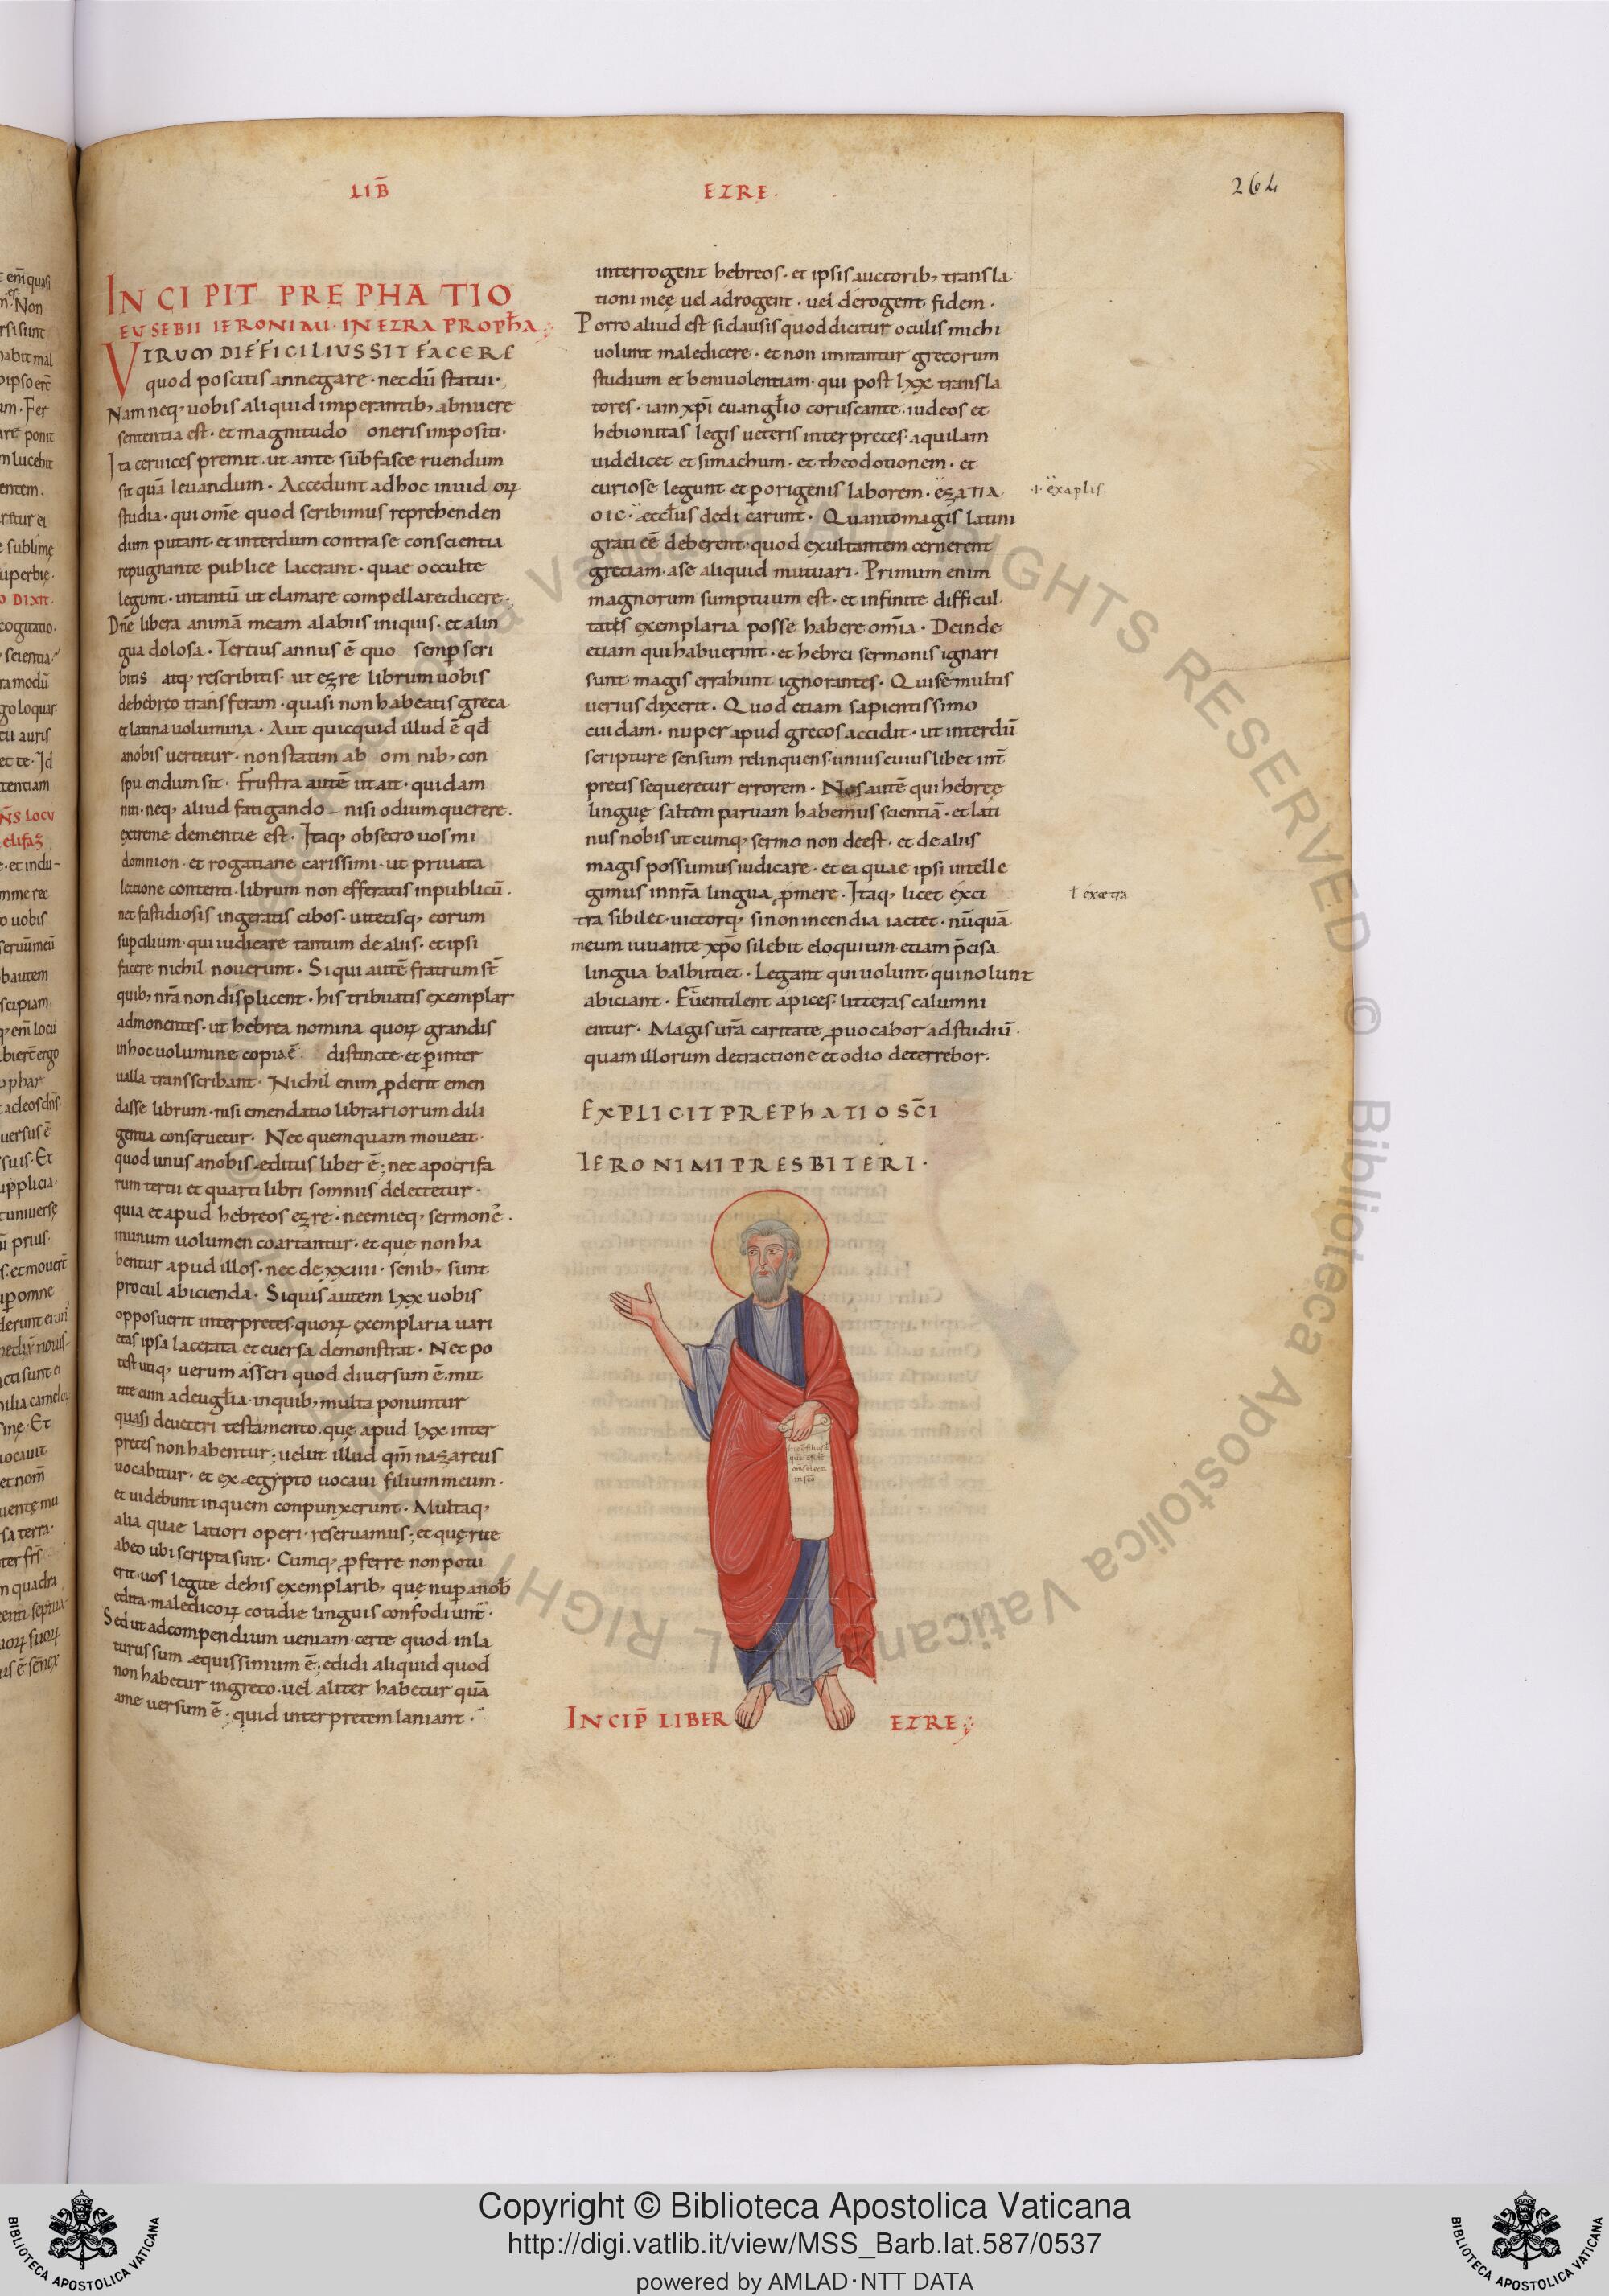 LIB̅
EZRE.
264
INCIPIT PREPHATIO
EUSEBII IERONIMI· IN EZRA PROPħA
VIRUM DIFFICILIUS SIT FACERE
quod poscitis annegare· nec dū statui·
Nam neq; uobis aliquid imperantib; abnuere
sententia est· et magnitudo oneris impositi·
Ita ceruices premit· ut ante sub fasce ruendum
sit quā leuandum· Accedunt ad hoc inuidoꝝ
studia· qui om̄e quod scribimus reprehenden
dum putant· et interdum contra se conscientia
repugnante publice lacerant· quae occulte
legunt· intantū ut clamare compellar et dicere·
Dn̄e libera animā meam a labiis iniquis· et a lin
gua dolosa· Tertius annus ē quo semꝑ scri
bitis atq; rescribitis· ut ezre librum uobis
de hebreo transferam· quasi non habeatis greca
et latina uolumina· Aut quicquid illud ē qđ
a nobis uertitur· non statim ab omnib; con
spuendum sit· Frustra autē ut ait· quidam
niti· neq; aliud fatigando nisi odium querere·
extreme dementie est· Itaq; obsecro uos mi
domnion· et rogatiane carissimi· ut priuata
lectione contenti· librum non efferatis in publicū·
nec fastidiosis ingeratis cibos· uitetisq; eorum
suꝑcilium· qui iudicare tantum de aliis· et ipsi
facere nichil nouerunt· Si qui autē fratrum st̄
quib; nr̄a non displicent· his tribuatis exemplar
admonentes· ut hebrea nomina quoꝝ grandis
in hoc uolumine copia ē· distincte· et ꝑ inter
ualla transscribant· Nichil enim ꝓderit emen
dasse librum· nisi emendatio librariorum dili
gentia conseruetur· Nec quemquam moueat·
quod unus a nobis editus liber ē; nec apocrifa
rum tertii et quarti libri somniis delectetur·
quia et apud hebreos ezre· neemieq; sermonē·
in unum uolumen coartantur· et quę non ha
bentur apud illos· nec de xxiiii· senib; sunt
procul abicienda· Siquis autem lxx uobis
opposuerit interpretes· quoꝝ exemplaria uari
etas ipsa lacerata et euersa demonstrat· Nec po
test utiq; uerum asseri quod diuersum ē· mit
tite eum ad eugłia· in quib; multa ponuntur
quasi de ueteri testamento· quę apud lxx inter
pretes non habentur; uelut illud qm̄ nazareus
uocabitur· et ex ægypto uocaui filium meum·
et uidebunt in quem conpunxerunt· Multaq;
alia quae latiori operi· reseruamus; et quęrite
ab eo ubi scripta sint· Cumq; ꝓferre non potu
erit· uos legite de his exemplarib; quę nuꝑ a nob̅
edita· maledicoꝝ cotidie linguis confodiunt̄·
Sed ut ad compendium ueniam· certe quod inla
turus sum æquissimum ē; edidi aliquid quod
non habetur in greco· uel aliter habetur quā
a me uersum ē; quid interpretem laniant·
interrogent hebreos· et ipsis auctorib; transla
tioni meę uel adrogent· uel derogent fidem·
Porro aliud est si clausis quod dicitur oculis michi
uolunt maledicere· et non imitantur grecorum
studium et beniuolentiam· qui post lxx transla
tores· iam xp̄i euangłio coruscante· iudeos et
hebionitas legis ueteris interpretes· aquilam
uidelicet et simachum· et theodotionem· et
curiose legunt et ꝑ origenis laborem· ezatia
·i· exaplis·
oic· eccłus dedicarunt̄· Quanto magis latini
grati eē deberent· quod exultantem cernerent
greciam· a se aliquid mutuari· Primum enim
magnorum sumptuum est· et infinite difficul
tates exemplaria posse habere om̄ia· Deinde
etiam qui habuerint· et hebrei sermonis ignari
sunt· magis errabunt ignorantes· Qui se multis
uerius dixerit· Quod etiam sapientissimo
cuidam· nuper apud grecos accidit· ut interdū
scripture sensum relinquens· unius cuius libet int̄
pretis sequeretur errorem· Nos autē qui hebreę
linguę saltem paruam habemus scientiā· et lati
nus nobis utcumq; sermo non deest· et de aliis
magis possumus iudicare· et ea quae ipsi intelle
gimus in nr̄a lingua ꝓmere· Itaq; licet exci
ł excetra
tra sibilet· uictorq; sinon incendia iactet· nūquā
meum iuuante xp̄o silebit eloquium· etiam p̄cisa
lingua balbutiet· Legant qui uolunt qui nolunt
abiciant· Euentilent apices· litteras calumni
entur· Magis ur̄a caritate ꝓuocabor ad studiū·
quam illorum detractione et odio deterrebor.
EXPLICIT PREPHATIO SC̄I
IERONIMI PRESBITERI·
INCIP̄ LIBER EZRE
Copyright © Biblioteca Apostolica Vaticana
http://digi.vatlib.it/view/MSS_Barb.lat.587/0537
powered by AMLAD·NTT DATA
BIBLIOTECA APOSTOLICA VATICANA
BIBLIOTECA APOSTOLICA VATICANA